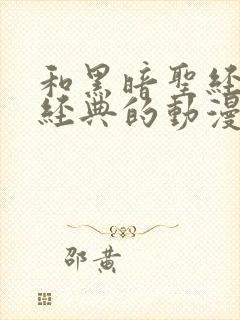 和黑暗聖經
經典的動漫
邵黄